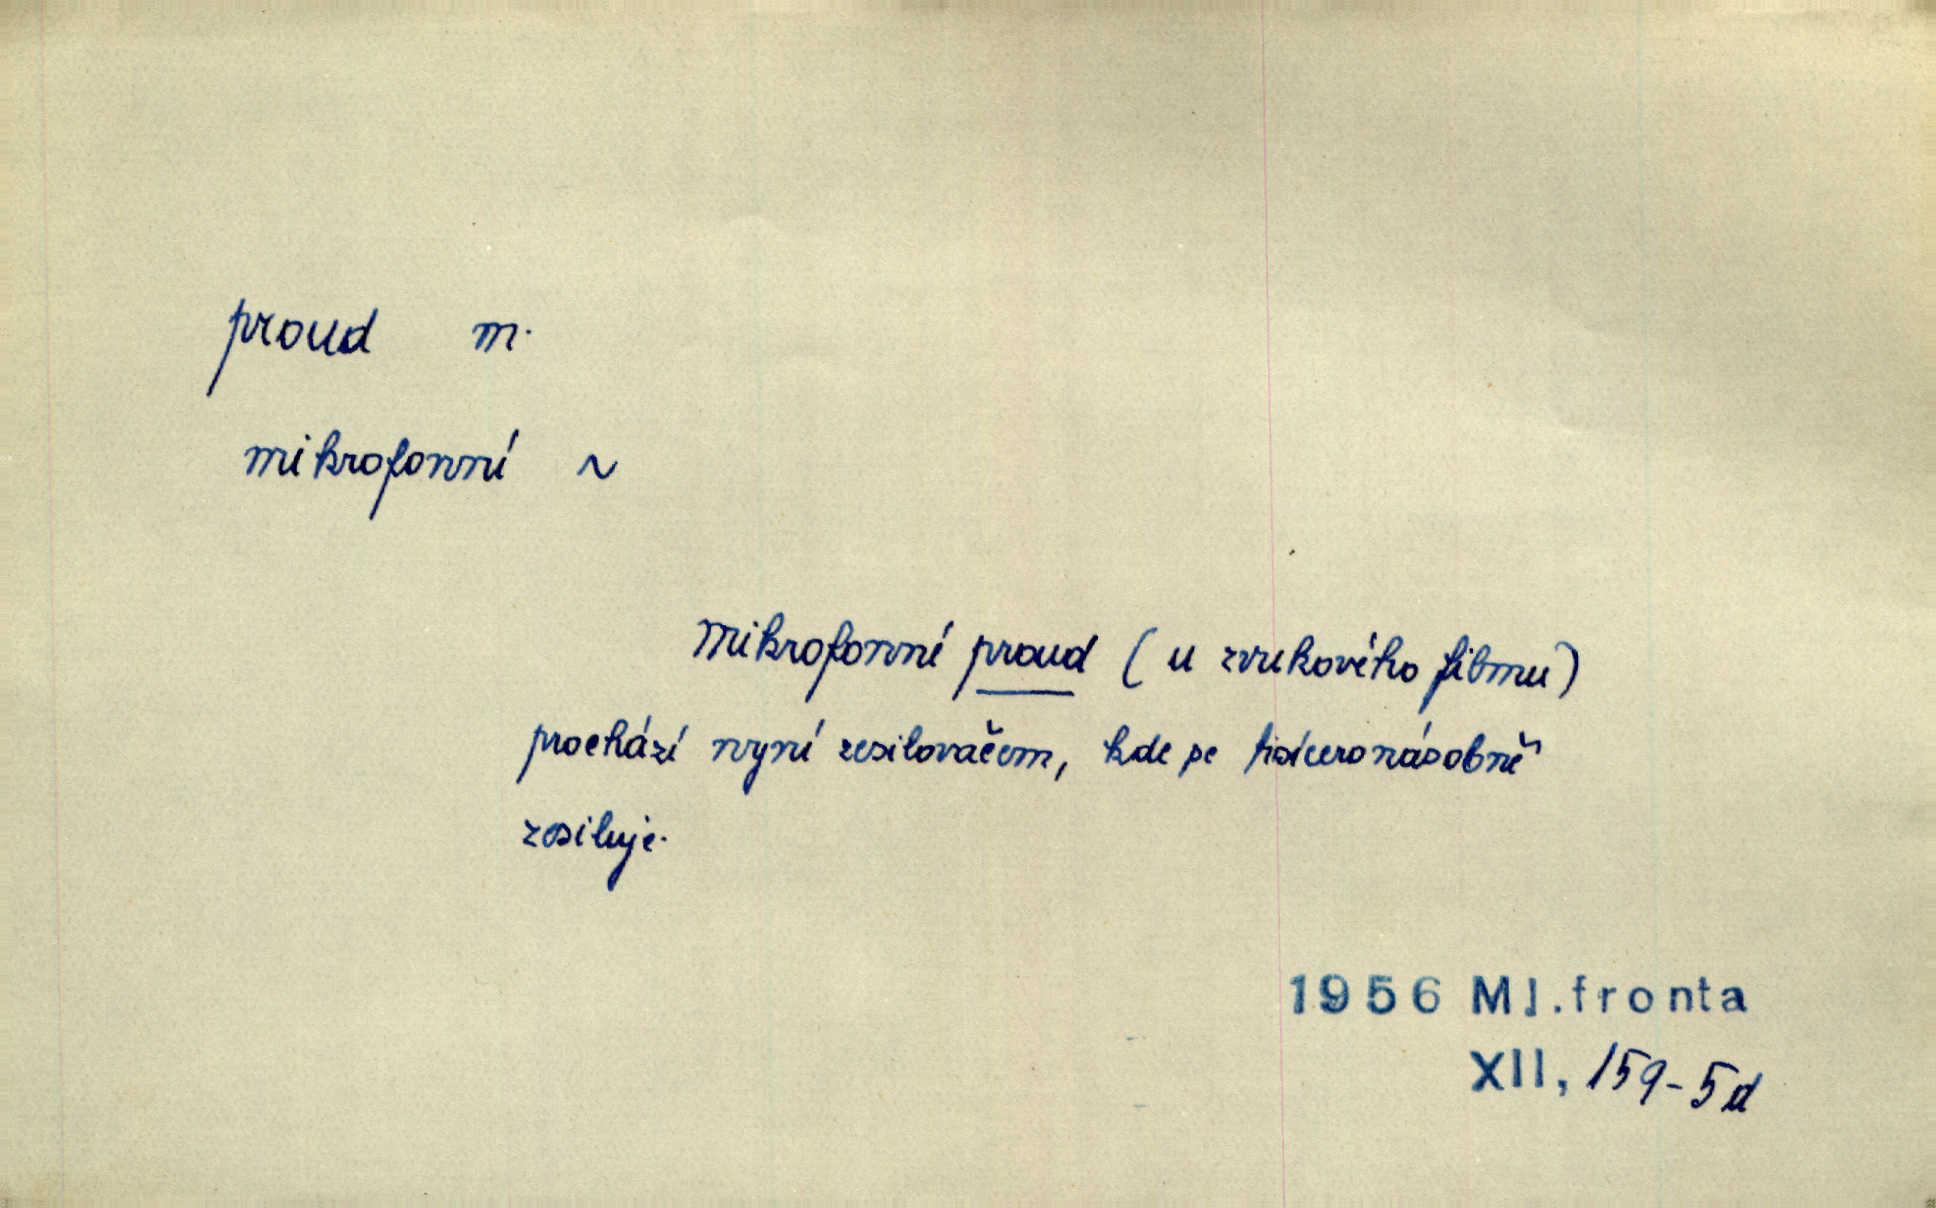 proud m.
mikrofonní ~
Mikrofonní proud (u zvukového filmu)
prochází nyní zesilovačem, kde se tisíceronásobně
zesiluje.
1956 Ml.fronta
XII, 159-5d